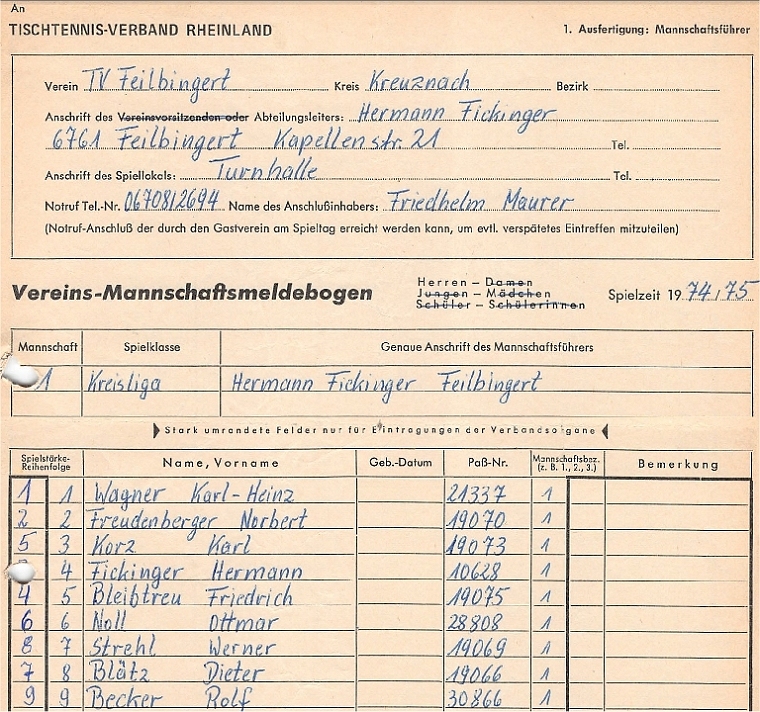 An
TISCHTENNIS-VERBAND RHEINLAND 1. Ausfertigung: Mannschaftsführer
Verein TV Feilbingert Kreis Kreuznach Bezirk
Anschrift des Vereinsvorsitzenden oder Abteilungsleiters: Hermann Fickinger
6761 Feilbingert Kapellenstr. 21 Tel.
Anschrift des Spiellokals: Turnhalle Tel.
Notruf Tel.-Nr. 06708/2694 Name des Anschlußinhabers: Friedhelm Maurer
(Notruf-Anschluß der durch den Gastverein am Spieltag erreicht werden kann, um evtl. verspätetes Eintreffen mitzuteilen)
Vereins-Mannschaftsmeldebogen Herren – Damen
Jungen – Mädchen
Schüler – Schülerinnen
Spielzeit 19 74/75
Mannschaft Spielklasse Genaue Anschrift des Mannschaftsführers
1 Kreisliga Hermann Fickinger Feilbingert
Stark umrandete Felder nur für Eintragungen der Verbandsorgane
Spielstärke-Reihenfolge Name, Vorname Geb.-Datum Paß-Nr. Mannschaftsbez. (z. B. 1., 2., 3.) Bemerkung
1 1 Wagner Karl-Heinz 21337 1
2 2 Freudenberger Norbert 19070 1
5 3 Korz Karl 19073 1
4 Fickinger Hermann 10628 1
4 5 Bleibtreu Friedrich 19075 1
6 6 Noll Ottmar 28808 1
8 7 Strehl Werner 19069 1
7 8 Blätz Dieter 19066 1
9 9 Becker Rolf 30866 1